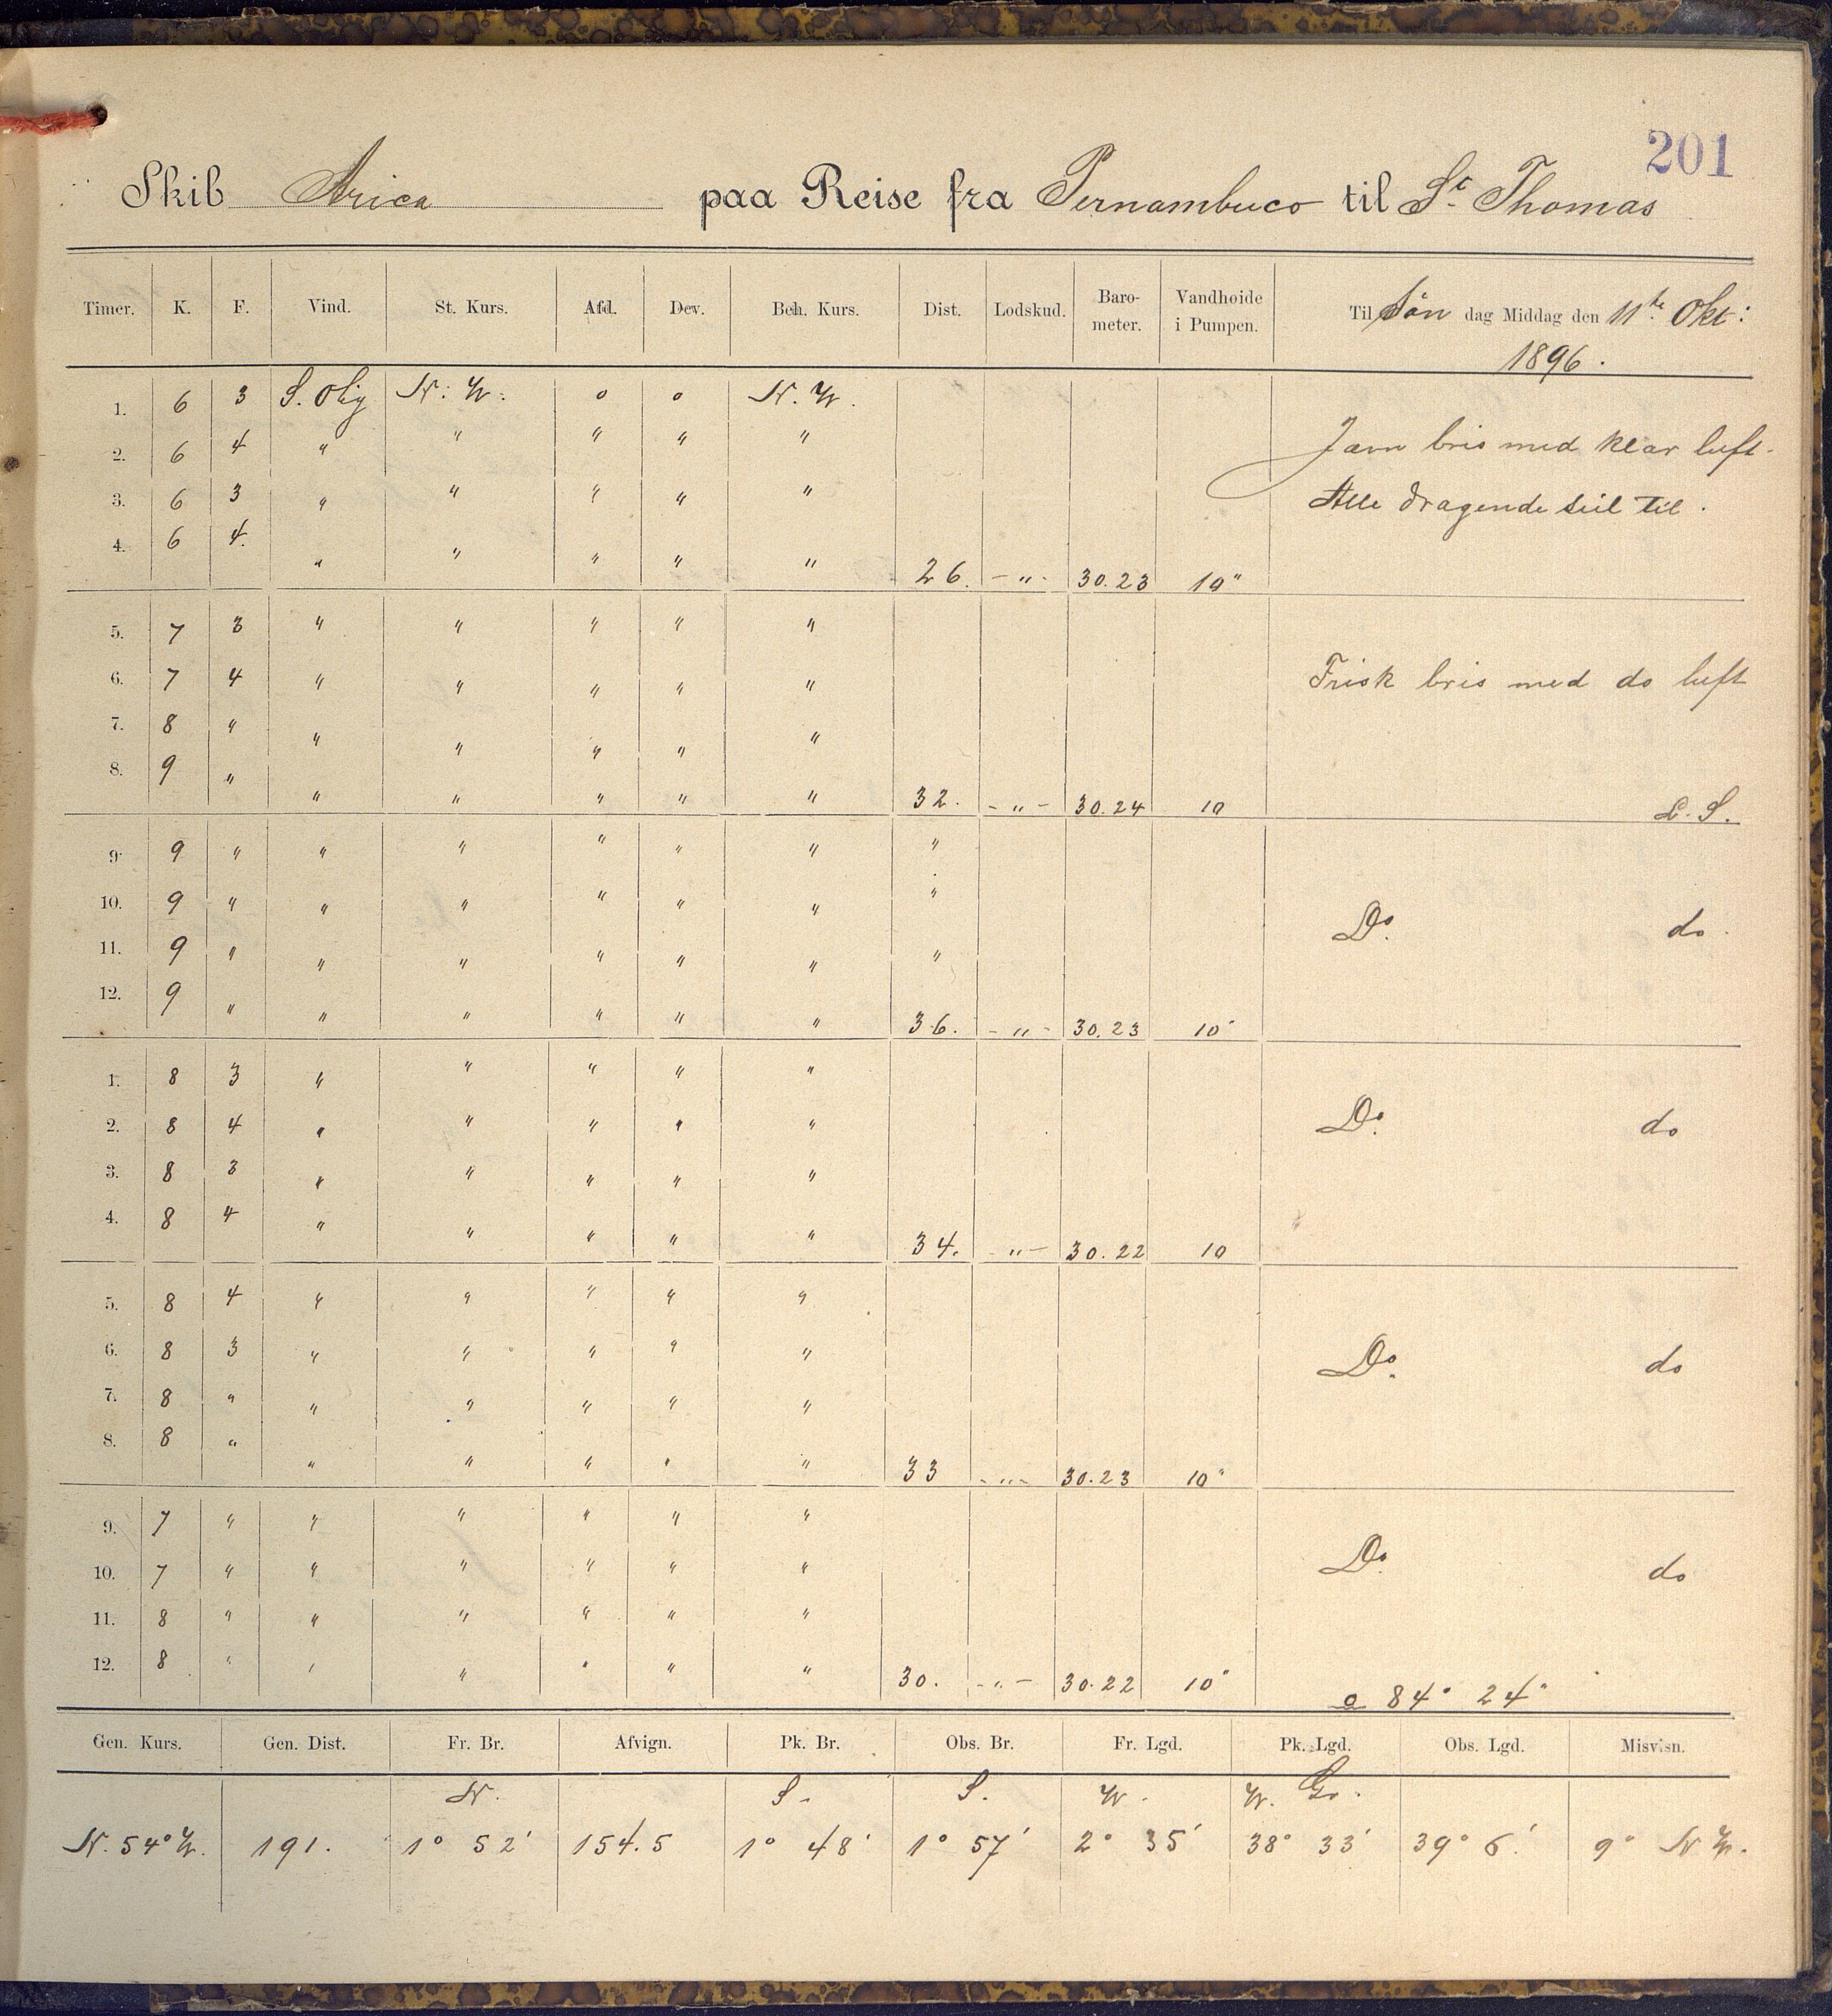 201
Skib Arica paa Reise fra Pernambuco til St Thomas
Timer. K. F. Vind. St. Kurs. Afd. Dev. Beh. Kurs. Dist. Lodskud. Baro- meter. Vandhøide i Pumpen. Til Søn dag Middag den 11te Okt:
1896.
1. 6 3 S. Olig N. W. o o N. W.
2. 6 4 " " " " " Jævn bris med klar luft.
3. 6 3 " " " " " Alle dragende seil til.
4. 6 4. " " " " " 26. -"- 30.23 10"
5. 7 3 " " " " "
6. 7 4 " " " " " Frisk bris med do luft
7. 8 " " " " " "
8. 9 " " " " " " 32. -"- 30.24 10 L. S.
9. 9 " " " " " " "
10. 9 " " " " " " " Do. do.
11. 9 " " " " " " "
12. 9 " " " " " " 36. -"- 30.23 10"
1. 8 3 " " " " "
2. 8 4 " " " " " Do. do
3. 8 3 " " " " "
4. 8 4 " " " " " 34. -"- 30.22 10
5. 8 4 " " " " "
6. 8 3 " " " " " Do. do
7. 8 " " " " " "
8. 8 " " " " " " 33 -"- 30.23 10"
9. 7 " " " " " "
10. 7 " " " " " " Do. do
11. 8 " " " " " "
12. 8 " " " " " " 30. -"- 30.22 10" o 84° 24"
Gen. Kurs. Gen. Dist. Fr. Br. Afvign. Pk. Br. Obs. Br. Fr. Lgd. Pk. Lgd. Obs. Lgd. Misvisn.
N. S. S. W. W. Gr.
N. 54° W. 191. 1° 52' 154.5 1° 48' 1° 57' 2° 35' 38° 33' 39° 6' 9° N W.